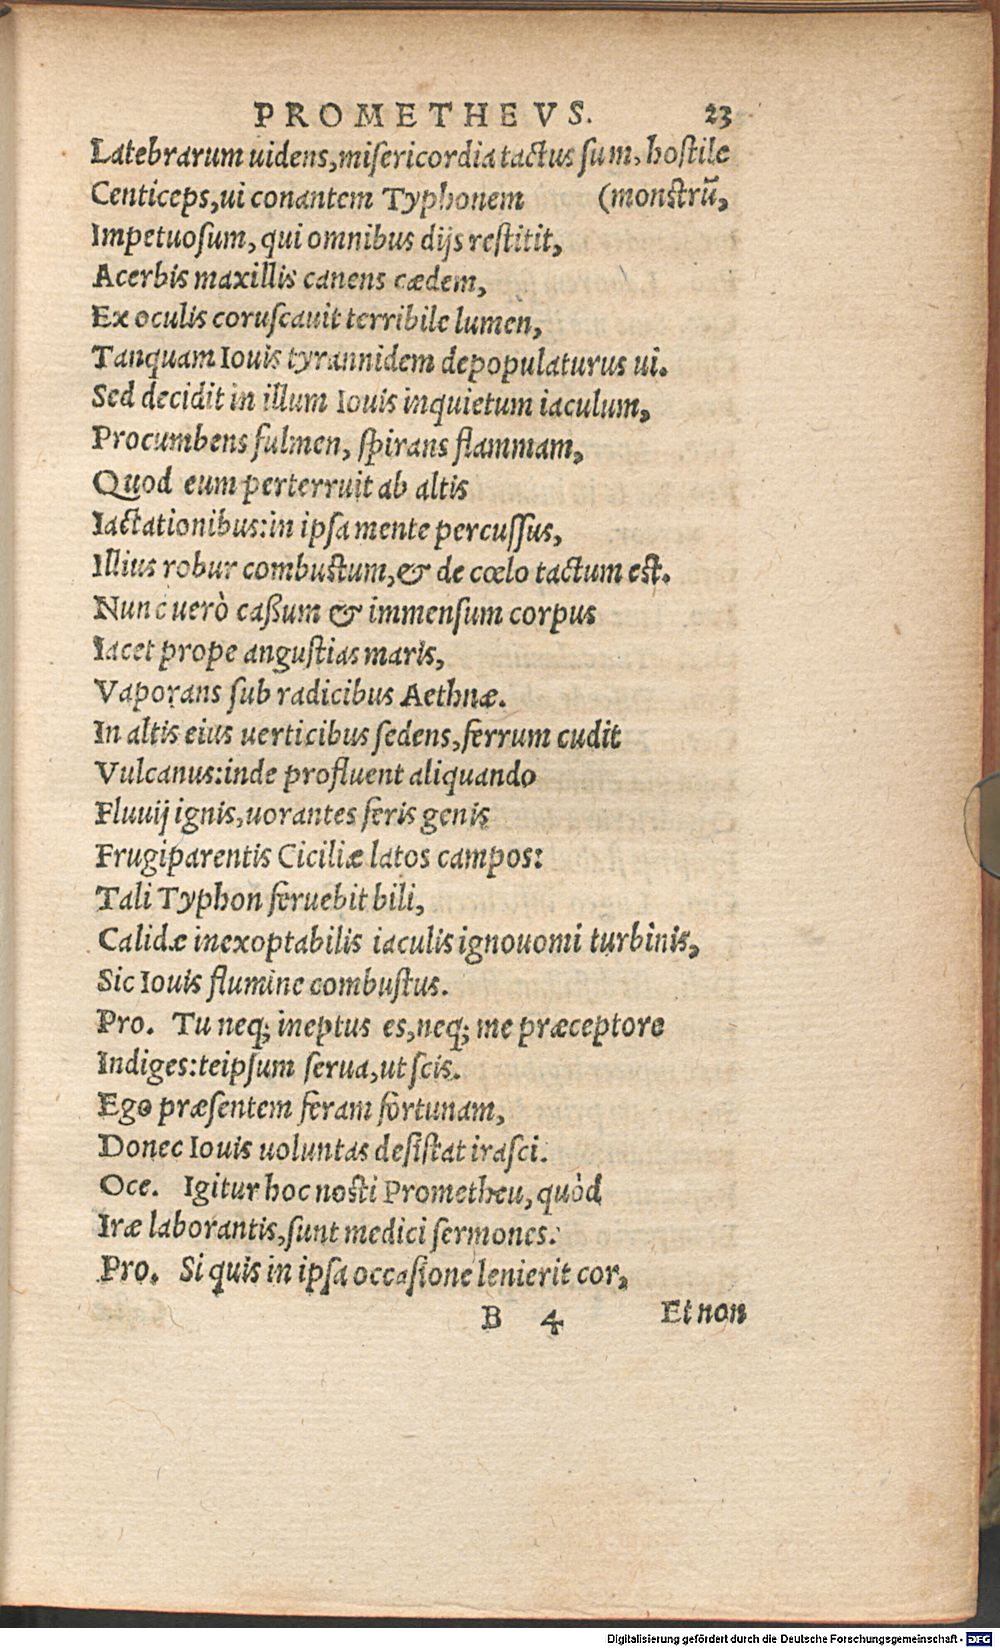 PROMETHEVS. 23
Latebrarum uidens, misericordia tactus sum, hostile
Centiceps, ui conantem Typhonem (monstrū,
Impetuosum, qui omnibus dijs restitit,
Acerbis maxillis canens cædem,
Ex oculis coruscauit terribile lumen,
Tanquam Iouis tyrannidem depopulaturus ui.
Sed decidit in illum Iouis inquietum iaculum,
Procumbens fulmen, spirans flammam,
Quod eum perterruit ab altis
Iactationibus: in ipsa mente percussus,
Illius robur combustum, & de cœlo tactum est.
Nunc uerò caßum & immensum corpus
Iacet prope angustias maris,
Vaporans sub radicibus Aethnæ.
In altis eius uerticibus sedens, ferrum cudit
Vulcanus: inde profluent aliquando
Fluuij ignis, uorantes feris genis
Frugiparentis Ciciliæ latos campos:
Tali Typhon feruebit bili,
Calidæ inexoptabilis iaculis ignouomi turbinis,
Sic Iouis flumine combustus.
Pro. Tu neq; ineptus es, neq; me præceptore
Indiges: teipsum serua, ut scis.
Ego præsentem feram fortunam,
Donec Iouis uoluntas desistat irasci.
Oce. Igitur hoc nosti Prometheu, quòd
Iræ laborantis, sunt medici sermones.
Pro. Si quis in ipsa occasione lenierit cor,
B 4 Et non
Digitalisierung gefördert durch die Deutsche Forschungsgemeinschaft - DFG